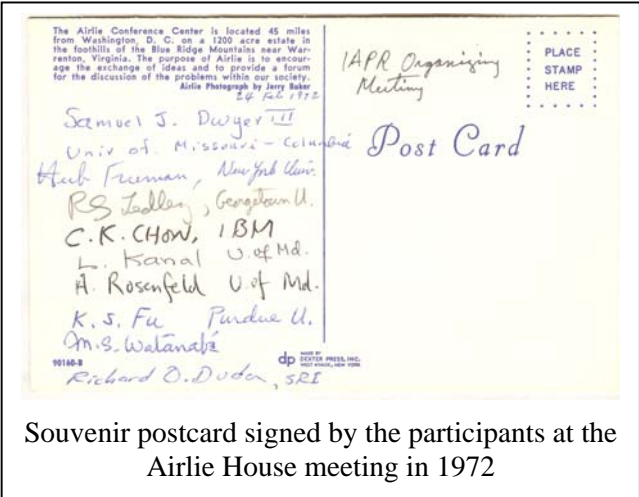 The Airlie Conference Center is located 45 miles
from Washington, D. C. on a 1200 acre estate in
the foothills of the Blue Ridge Mountains near War-
renton, Virginia. The purpose of Airlie is to encour-
age the exchange of ideas and to provide a forum
for the discussion of the problems within our society.
Airlie Photograph by Jerry Baker
24 Feb 1972
IAPR Organizing
Meeting
PLACE
STAMP
HERE
Post Card
Samuel J. Dwyer III
Univ of. Missouri - Columbia
Herb Freeman, New York Univ.
RS Ledley, Georgetown U.
C.K. CHOW, IBM
L. Kanal U. of Md.
A. Rosenfeld U. of Md.
K. S. Fu Purdue U.
M.S. Watanabe
90160-B
dp MADE BY
DEXTER PRESS, INC.
WEST NYACK, NEW YORK
Richard O. Duda, SRI
Souvenir postcard signed by the participants at the
Airlie House meeting in 1972